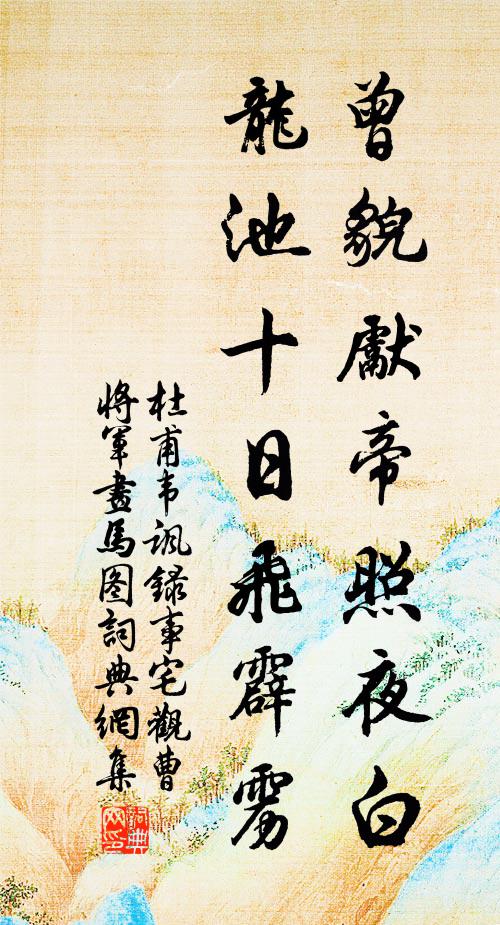 曾貌獻帝照夜白
龍池十日飛霹雳
杜甫韦諷録事宅觀曹
将軍畫馬图詞典網集
詞典
网印